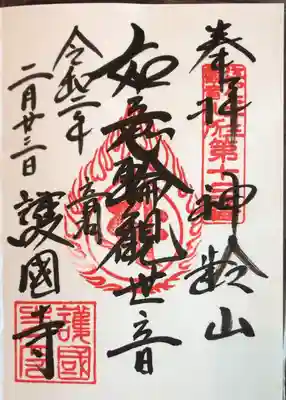 奉拝 神齢山
如意輪観世音
護國寺
令和二年
二月廿三日
護國